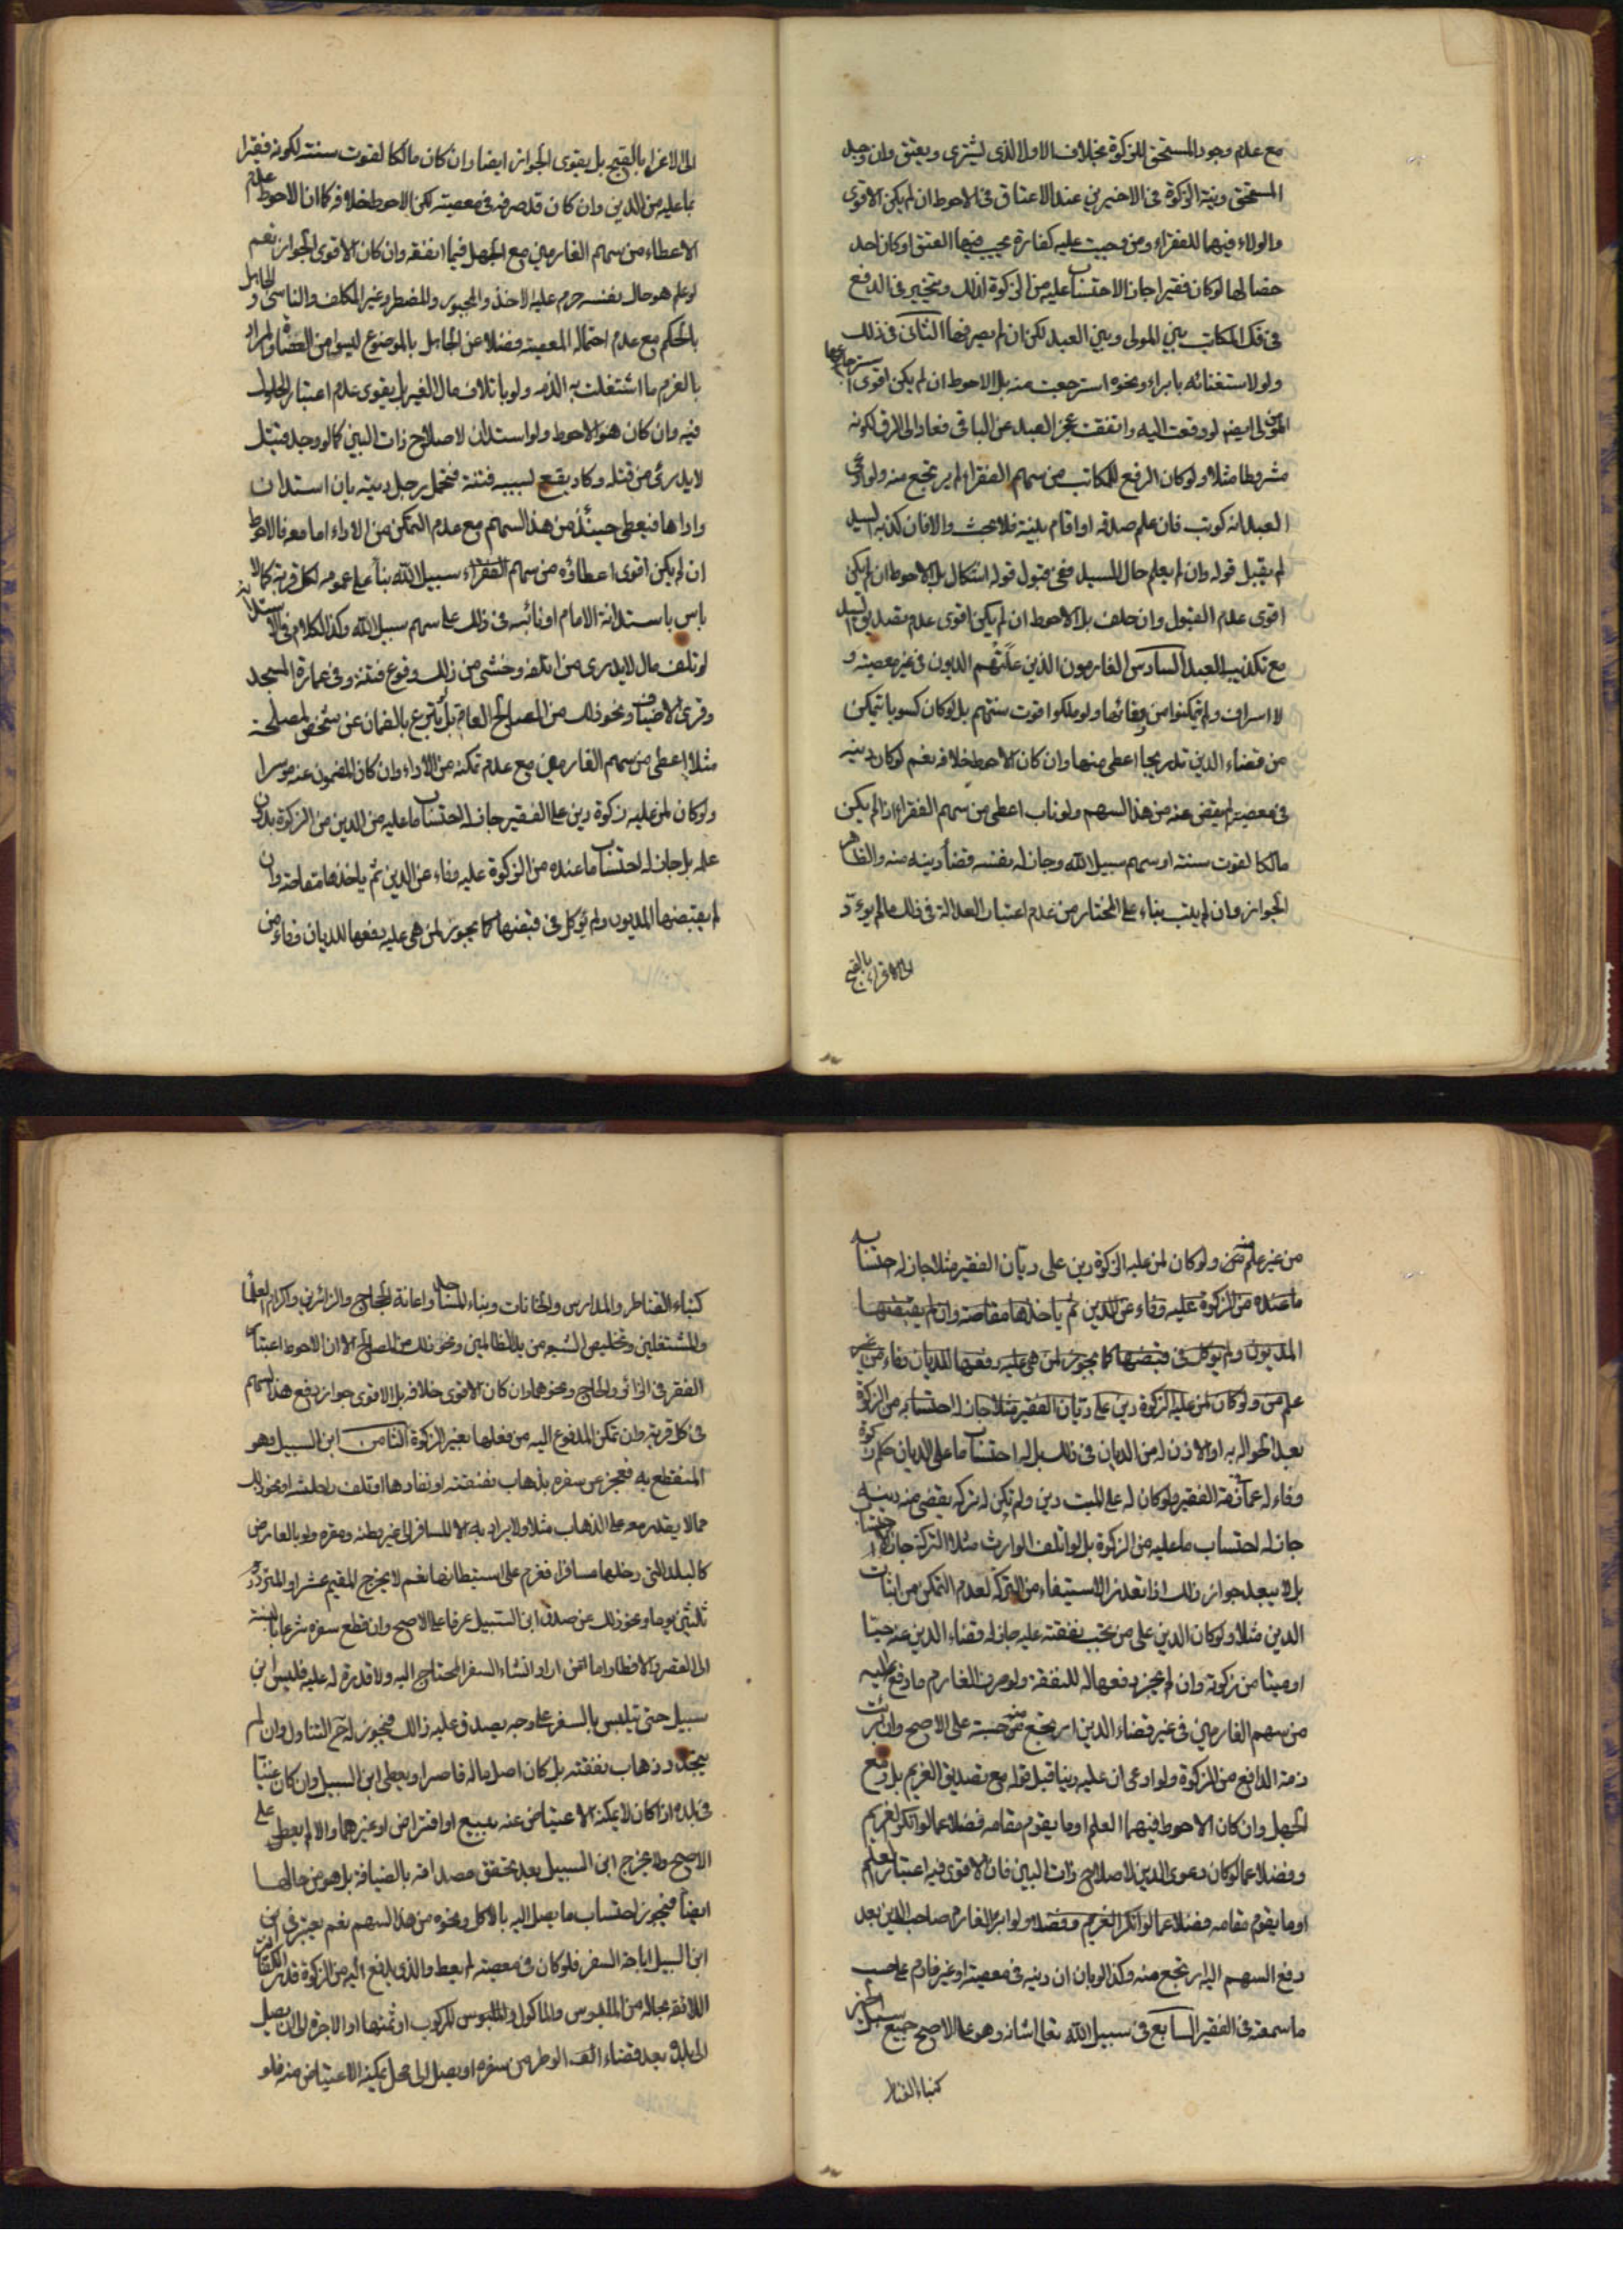 مع عدم وجود المستحق للزكوة بخلاف الاول الذى يشترى ويعتق وان وجد
المستحق ونية الزكوة فى الاخيرين عند الاعتاق فى الاحوط ان لم يكن الاقوى
والولاء فيهما للفقراء ومن وجبت عليه كفارة يجب فيها العتق او كان احد
خصالها لو كان فقيرا جاز الاحتساب عليه من الزكوة لذلك ويتخير فى الدفع
فى فك المكاتب بين المولى وبين العبد لكن ان لم يصرفها الثانى فى ذلك
ولو لاستغنائه بابراء ونحوه استرجعت منه بل الاحوط ان لم يكن اقوى استرجاعها
من المولى ايضا لو دفعت اليه واتفقت عجز العبد عن الباقى فعاد الى الرق لكونه
مشروطا مثلا ولو كان الدفع للمكاتب من سهم الفقراء لم يرتجع منه ولو ادعى
العبد انه كوتب فان علم صدقه او اقام بينة فلا بحث والا فان كذبه السيد
لم يقبل قوله وان لم يعلم حال السيد ففى قبول قوله اشكال بل الاحوط ان لم يكن
اقوى عدم القبول وان حلف بل الاحوط ان لم يكن اقوى عدم تصديق السيد
مع تكذيب العبد السادس الغارمون الذين علتهم الديون فى غير معصية و
لا اسراف ولم يتمكنوا من وفائها ولو ملكوا قوت سنتهم بل لو كان كسوبا يتمكن
من قضاء الدين تدريجا اعطى منها وان كان الاحوط خلافه نعم لو كان دينه
فى معصية لم يقض عنه من هذا السهم ولو تاب اعطى من سهم الفقراء اذا لم يكن
مالكا لقوت سنته او سهم سبيل الله وجاز له بنفسه قضاء دينه منه والظاهر
الجواز وان لم يتب بناء على المختار من عدم اعتبار العدالة فى ذلك ما لم يؤد
الى الاغراء بالقبح
الى الاغراء بالقبح بل يقوى الجواز ايضا وان كان مالكا لقوت سنته لكونه فقيرا
بما عليه من الدين وان كان قد صرفه فى معصية لكن الاحوط خلافه كما ان الاحوط عدم
الاعطاء من سهم الغارمين مع الجهل فيما انفقه وان كان الاقوى الجواز نعم
لو علم هو حال نفسه حرم عليه الاخذ والمجبور والمضطر وغير المكلف والناسى والجاهل
بالحكم مع عدم احتماله المعصية فضلا عن الجاهل بالموضوع ليسوا من العصاة والمراد
بالغرم ما اشتغلت به الذمه ولو باتلاف مال الغير بل يقوى عدم اعتبار الحلول
فيه وان كان هو الاحوط ولو استدان لاصلاح ذات البين كما لو وجد قتيل
لا يدرى من قتله وكاد يقع لسببه فتنة فتحمل رجل ديته بان استدان
واداها فيعطى حينئذ من هذا السهم مع عدم التمكن من الاداء اما معه فالاحوط
ان لم يكن اقوى اعطاؤه من سهم الفقراء سبيل الله بناء على عمومه لكل قربة كما لا
باس باستدانة الامام او نائبه فى ذلك على سهم سبيل الله وكذا الكلام فى الاستدانة
لو تلف مال لا يدرى من اتلفه وخشى من ذلك وقوع فتنة وفى عمارة المسجد
وقرى الاضياف ونحو ذلك من المصالح العام بل لو تبرع بالضمان عن شخص لمصلحة
مثلا اعطى من سهم الغارمين مع عدم تمكنه من الاداء وان كان المضمون عنه موسرا
ولو كان لمن عليه زكوة دين على الفقير جاز له احتساب ما عليه من الدين من الزكوة بدون
علمه بل جاز له احتساب ما عنده من الزكوة عليه وفاء عن الدين ثم ياخذها مقاصة وان
لم يقبضها المديون ولم يوكل فى قبضها كما يجوز لمن هى عليه دفعها للديان وفاء من
من غير علم منه ولو كان لمن عليه الزكوة دين على ديان الفقير مثلا جاز له احتسابه
ما عنده من الزكوة عليه وفاء عن الدين ثم ياخذها مقاصة وان لم يقبضها
المديون ولم يوكل فى قبضها كما يجوز لمن هى عليه دفعها للديان وفاء من غير
علم من ولو كان لمن عليه الزكوة دين على ديان الفقير مثلا جاز له احتسابه من الزكوة
بعد الحواله به او الاذن له من الديان فى ذلك بل له احتساب ما على الديان زكوة
وفاء له عما فى ذمة الفقير ولو كان له على الميت دين ولم تكن له تركه يقضى منه دينه
جاز له احتساب ما عليه من الزكوة بل لو اتلف الوارث مثلا التركة جاز الاحتساب
بل لا يبعد جواز ذلك اذا تعذر الاستيفاء من التركة لعدم التمكن من اثبات
الدين مثلا ولو كان الدين على من تجب نفقته عليه جاز له قضاء الدين عنه حيا
او ميتا من زكوته وان لم يجز دفعها له للنفقة ولو صرف الغارم ما دفع اليه
من سهم الغارمين فى غير قضاء الدين ارتجع منه حسبة على الاصح وان برئت
ذمة الدافع من الزكوة ولو ادعى ان عليه دينا قبل قوله مع تصديق الغريم بل ومع
الجهل وان كان الاحوط فيهما العلم او ما يقوم مقامه فضلا عما لو انكر الغريم
وفضلا عما لو كان دعوى الدين لاصلاح ذات البين فان الاقوى فيه اعتبار العلم
او ما يقوم مقامه فضلا عما لو انكر الغريم وفضلا ولو ابرا الغارم صاحب الدين بعد
دفع السهم اليه ارتجع منه وكذا لو بان ان دينه فى معصية او غير غارم على حسب
ما سمعته فى الفقير السابع فى سبيل الله تعالى شانه وهو على الاصح جميع سبل الخير
كبناء القناطر
كبناء القناطر والمدارس والخانات وبناء المساجد واعانة الحجاج والزائرين واكرام العلما
والمشتغلين وتخليص الشيعه من يد الظالمين ونحو ذلك من المصالح الا ان الاحوط اعتبار
الفقر فى الزائر والحاج ونحوهما وان كان الاقوى خلافه بل الاقوى جواز دفع هذا السهم
فى كل قربة وان تمكن المدفوع اليه من فعلها بغير الزكوة الثامن ابن السبيل وهو
المنقطع به فعجز عن سفره بذهاب نفقته او نفادها او تلف راحلته او نحو ذلك
مما لا يقدر معه على الذهاب مثلا ولا يراد به الا المسافر الى غير وطنه ومقره ولو بالعارض
كالبلد التى دخلها مسافرا فعزم على استيطانها نعم لا يخرج المقيم عشرا والمتردد
ثلثين يوما ونحو ذلك عن صدق ابن السبيل عرفا على الاصح وان قطع سفره شرعا بالنسبة
الى القصر والافطار واما من اراد انشاء السفر المحتاج اليه ولا قدرة له عليه فليس ابن
سبيل حتى يتلبس بالسفر على وجه يصدق عليه ذلك فيجوز له ح التناول وان لم
يتجدد ذهاب نفقته بل كان اصل ماله قاصرا ويعطى ابن السبيل وان كان غنيا
فى بلده اذا كان لا يمكنه الاعتياض عنه ببيع او اقتراض او غيرهما والا لم يعط على
الاصح ولا يخرج ابن السبيل بعد تحقق مصداقه بالضيافة بل هو من حالها
ايضا فيجوز احتساب ما يصل اليه بالاكل ونحوه من هذا السهم نعم يعتبر فى ابن
ابن السبيل اباحة السفر فلو كان فى معصية لم يعط والذى يدفع اليه من الزكوة قدر الكفاية
اللائقه بحاله من الملبوس والماكول والملبوس المركوب او ثمنها او الاجرة الى ان يصل
الى بلده بعد قضاء الوطر من سفره او يصل الى محل يمكنه الاعتياض منه فلو